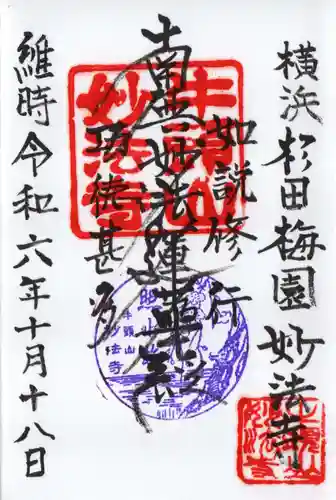 横浜杉田梅園妙法寺
如説修行
南無妙法蓮華経
功徳甚多
維時令和六年十月十八日
牛頭山
妙法寺
牛頭山
妙法寺